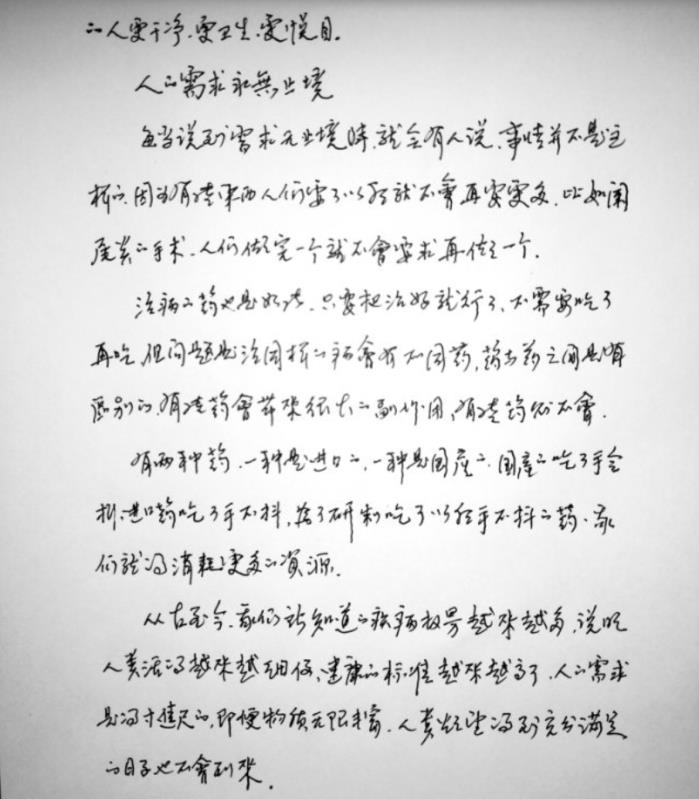 的人更干净、更卫生、更悦目。
人的需求永無止境
每当说到需求无止境時,就会有人说,事情并不是这
様的,因为有些東西人们要了以後就不會再要更多,比如阑
尾炎的手术,人们做完一个就不會要求再做一个。
治病的药也是如此,只要把病治好就行了,不需要吃了
再吃,但问题是治同样的病會有不同药,药与药之间是有
區别的,有些药會带来很大的副作用,有些药则不會。
有两种药,一种是進口的,一种是国産的,国産的吃了手会
抖,進口药吃了手不抖,为了研制吃了以後手不抖的药,我
们就得消耗更多的資源。
从古至今,我们所知道的疾病数量越来越多,说明
人类活得越来越细仔,健康的标准越来越高了,人的需求
是得寸進尺的,即便物质无限丰富,人类欲望得到充分满足
的日子也不會到來。